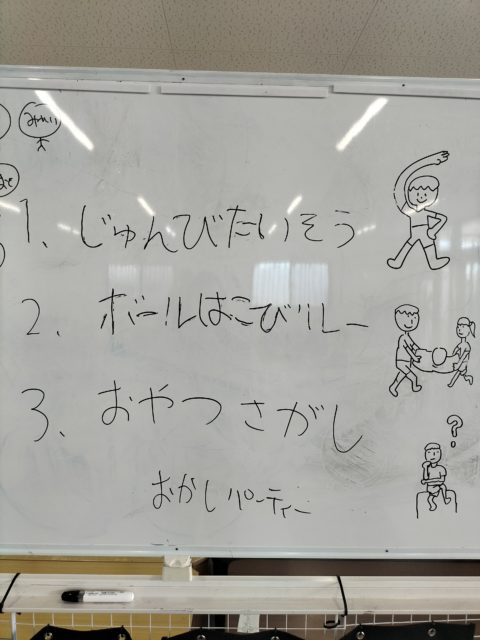 1、じゅんびたいそう
2、ボールはこびリレー
3、おやつさがし
おかしパーティー
?